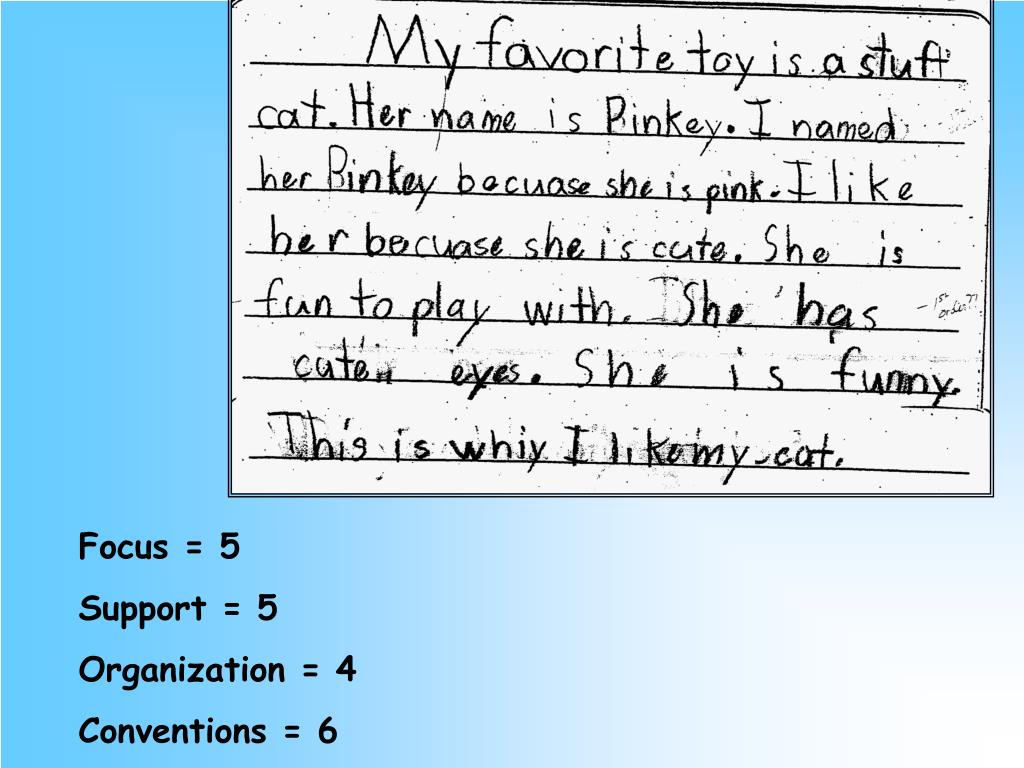 My favorite toy is a stuff
cat. Her name is Pinkey. I named
her Pinkey becuase she is pink. I like
her becuase she is cute. She is
fun to play with. She has
cute eyes. She is funny.
This is whiy I like my cat.
Focus = 5
Support = 5
Organization = 4
Conventions = 6